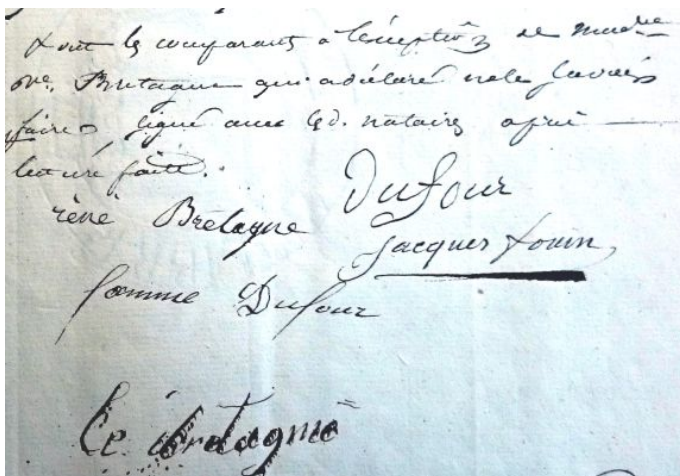 Dont les comparants a l'exception de mad.e
ve. Bretagne qui a déclaré ne le savoir
faire signé avec les d. notaires après
lecture faite.
rené Bretagne Dufour
jacques touin
femme Dufour
le bretagne